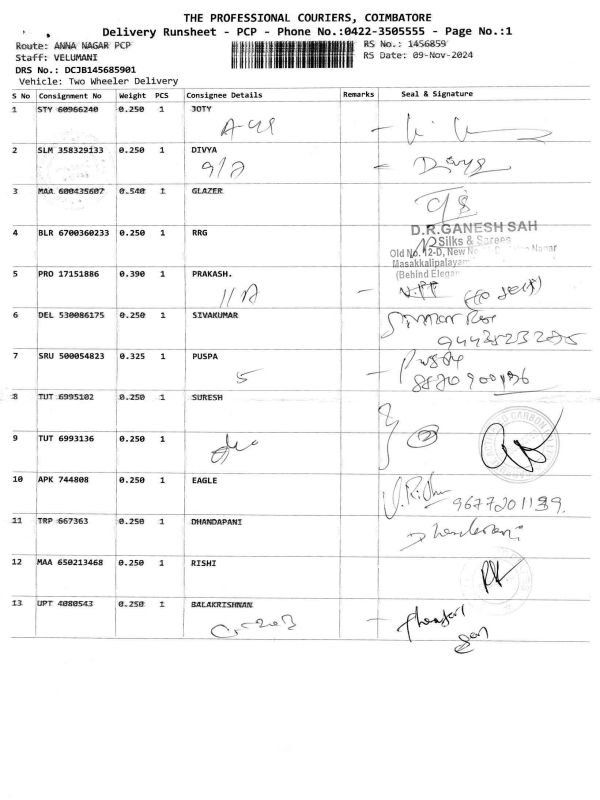 THE PROFESSIONAL COURIERS, COIMBATORE
Delivery Runsheet - PCP - Phone No.:0422-3505555 - Page No.:1
Route: ANNA NAGAR PCP
RS No.: 1456859
Staff: VELUMANI
RS Date: 09-Nov-2024
DRS No.: DCJB145685901
Vehicle: Two Wheeler Delivery
S No Consignment No Weight PCS Consignee Details Remarks Seal & Signature
1 STY 60966240 0.250 1 JOTY
2 SLM 358329133 0.250 1 DIVYA
9/2 Divya
3 MAA 600435607 0.540 1 GLAZER
4 BLR 6700360233 0.250 1 RRG
D.R.GANESH SAH
Silks & Sarees
Old No. 12-D, New No. Nagar
Masakkalipalayam
(Behind Elegan
5 PRO 17151886 0.390 1 PRAKASH.
11A
6 DEL 530086175 0.250 1 SIVAKUMAR
7 SRU 500054823 0.325 1 PUSPA
5
8 TUT 6995102 0.250 1 SURESH
2
9 TUT 6993136 0.250 1
10 APK 744808 0.250 1 EAGLE
9677201139.
11 TRP 667363 0.250 1 DHANDAPANI
12 MAA 650213468 0.250 1 RISHI
13 UPT 4080543 0.250 1 BALAKRISHNAN